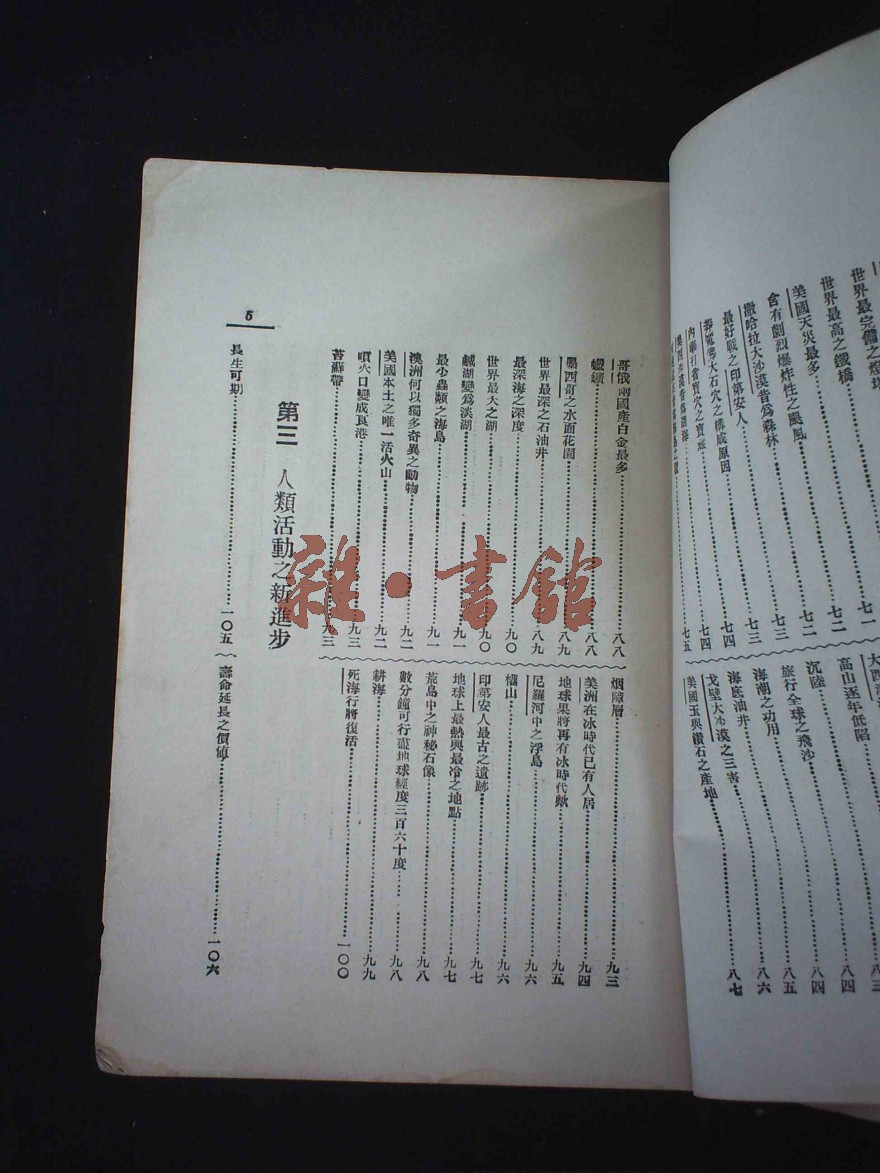 世界最完備之燈塔
世界最高之鐵橋……七一
美國天災最多……七二
含有劇烈爆炸性之颶風……七二
撒哈拉大沙漠昔爲森林……七三
最好戰之印第安人……七三
大石穴之構成原因……七四
七四
七五
大西
高山逐年低陷……八三
沉陸……八四
旅行全球之飛沙……八四
海潮之功用……八五
海底油井……八六
戈壁大沙漠之三害……八七
美國玉與鑽石之產地
哥俄兩國產白金最多……八八
蝦鑛……八八
墨西哥之水面花園……八九
世界最深之石油井……八九
最深海之深度……九〇
世界最大之湖……九〇
鹹湖變爲淡湖……九一
最少蟲類之海島……九一
澳洲何以獨多奇異之動物……九二
美國本土之唯一活火山……九二
噴火口變成良港……九三
苔蘚帶……九三
烟障層……九三
美洲在冰時代已有人居……九四
地球果將再有冰時代歟……九五
尼羅河中之浮島……九六
櫃山……九六
印第安人最古之遺跡……九七
地球上最熱與最冷之地點……九七
荒島中之神秘石像……九八
數分鐘可行盡地球經度三百六十度……九八
耕海……九九
死海行將復活……一〇〇
第三 人類活動之新進步
長生可期……一〇五
壽命延長之價值……一〇六
5
雜·書館